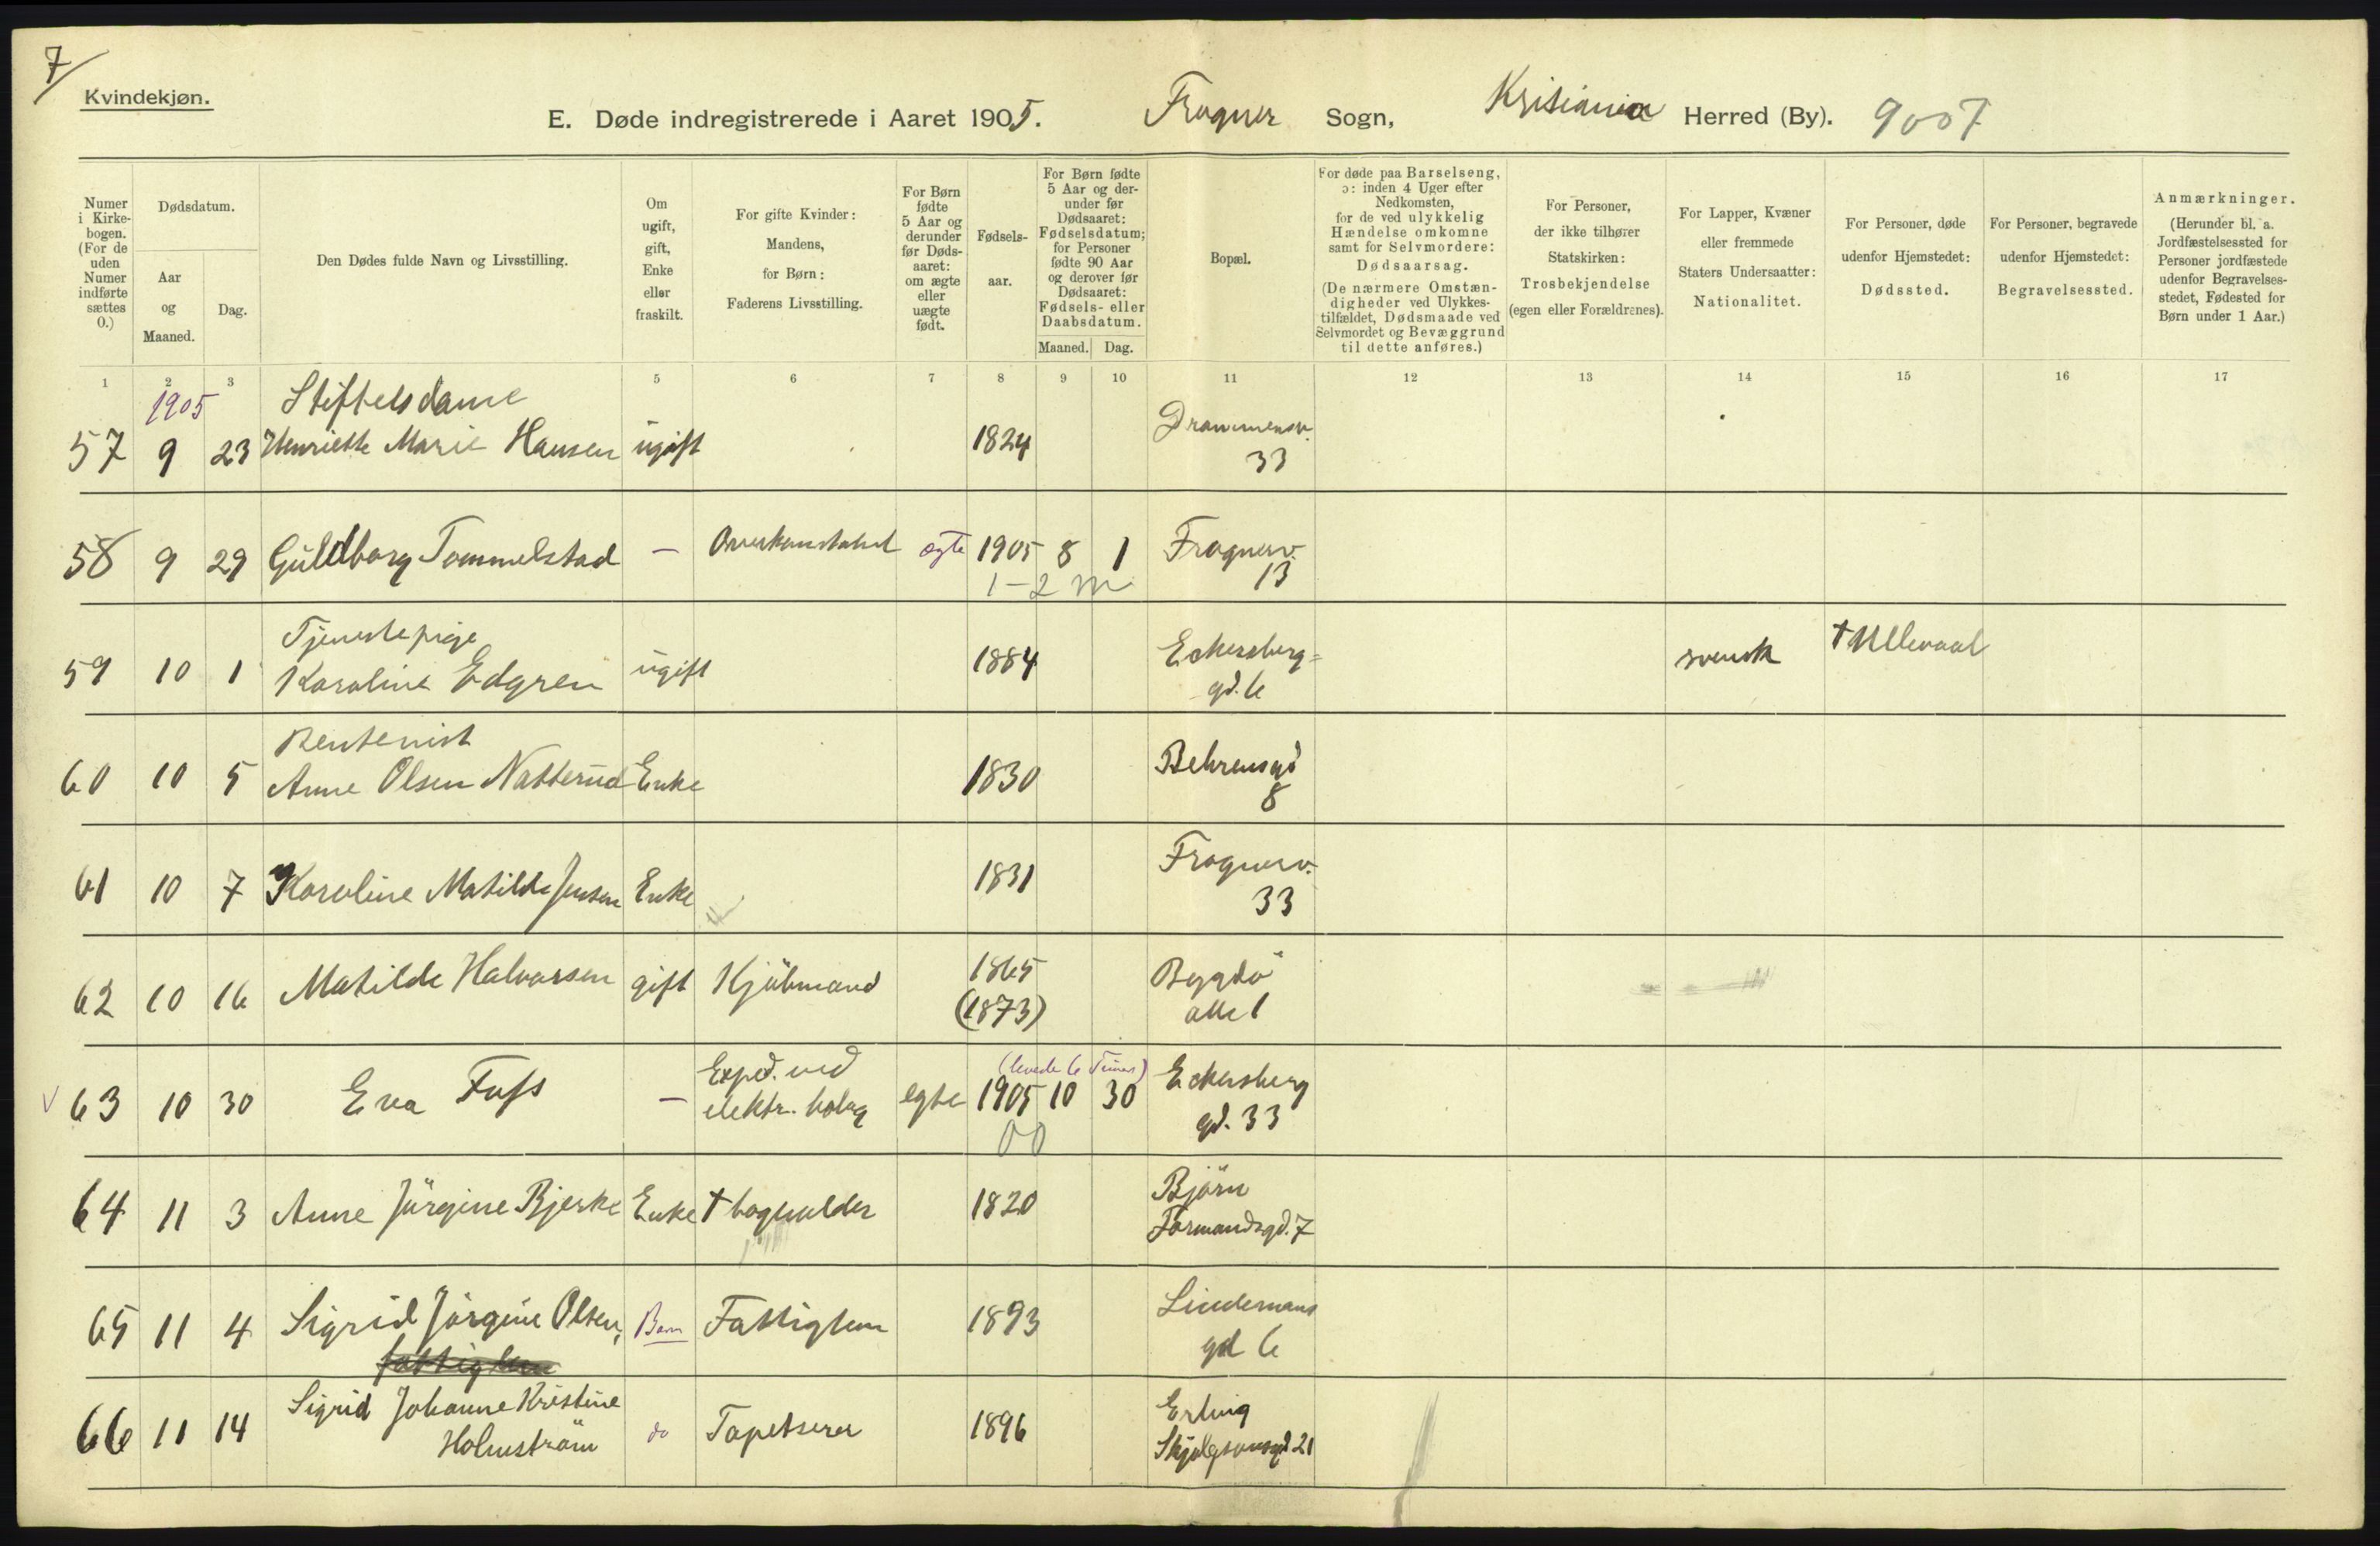 7
Kvindekjøn.
E. Døde indregistrerede i Aaret 1905. Frogner Sogn, Kristiania Herred (By). 9007
Numer i Kirkebogen. (For de uden Numer indførte sættes 0.)
Dødsdatum.
Aar og Maaned.
Dag.
Den Dødes fulde Navn og Livsstilling.
Om ugift, gift, Enke eller fraskilt.
For gifte Kvinder: Mandens, for Børn: Faderens Livsstilling.
For Børn fødte 5 Aar og derunder før Dødsaaret: om ægte eller uægte født.
Fødselsaar.
For Børn fødte 5 Aar og derunder før Dødsaaret: Fødselsdatum; for Personer fødte 90 Aar og derover før Dødsaaret: Fødsels- eller Daabsdatum.
Maaned. Dag.
Bopæl.
For døde paa Barselseng, ɔ: inden 4 Uger efter Nedkomsten, for de ved ulykkelig Hændelse omkomne samt for Selvmordere: Dødsaarsag. (De nærmere Omstændigheder ved Ulykkestilfældet, Dødsmaade ved Selvmordet og Bevæggrund til dette anføres.)
For Personer, der ikke tilhører Statskirken: Trosbekjendelse (egen eller Forældrenes).
For Lapper, Kvæner eller fremmede Staters Undersaatter: Nationalitet.
For Personer, døde udenfor Hjemstedet: Dødssted.
For Personer, begravede udenfor Hjemstedet: Begravelsessted.
Anmærkninger. (Herunder bl. a. Jordfæstelsessted for Personer jordfæstede udenfor Begravelsesstedet, Fødested for Børn under 1 Aar.)
1 2 3 5 6 7 8 9 10 11 12 13 14 15 16 17
1905 Stiftelsdame
57 9 23 Henriette Marie Hansen ugift 1824 Drammensv. 33
58 9 29 Guldborg Tommelstad — Overkonstabel ægte 1905 8 1 Frognerv. 13
1-2 m
Tjenestepige
59 10 1 Karoline Edgren ugift 1884 Eckersberg= gd. 6 svensk † Ullevaal
Rentenist
60 10 5 Anne Olsen Natterud Enke 1830 Behrensgd 8
61 10 7 Karoline Matilde Jensen Enke 1831 Frognerv. 33
62 10 16 Matilde Halvorsen gift Kjöbmand 1865 (1873) Bygdö alle 1
(levede 6 Timer)
63 10 30 Eva Fuss — Exped. ved elektr. bolag egte 1905 10 30 Eckersberg gd. 33
00
64 11 3 Anne Jürgine Bjerke Enke † 1820 Björn Farmandsgd. 7
65 11 4 Sigrid Jörgine Olsen, Barn Fattiglem 1893 Lindemans gd 6
fattiglem
66 11 14 Sigrid Johanne Kristine Holmström do Tapetserer 1896 Erling Skjalgsonsgd 21